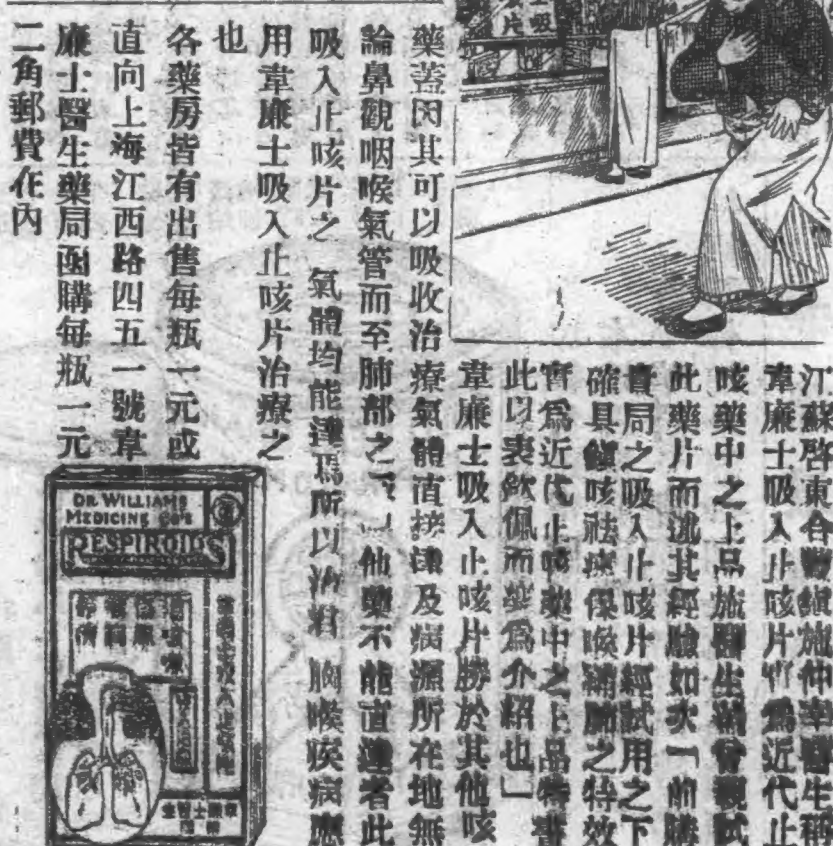 江蘇啓東合鎮施仲宰醫生稱
韋廉士吸入止咳片實爲近代止
咳藥中之上品施醫生曾親試
此藥片而述其經驗如次「前購
貴局之吸入止咳片經試用之下
確具鎮咳祛痰保喉補肺之特效
實爲近代止咳藥中之上品特書
此以表欽佩而樂爲介紹也」
韋廉士吸入止咳片勝於其他咳
藥蓋因其可以吸收治療氣體直接及病源所在地無
論鼻觀咽喉氣管而至肺部之他藥不能直達者此
吸入止咳片之氣體均能達焉所以治胸喉疾病應
用韋廉士吸入止咳片治療之
也
各藥房皆有出售每瓶一元或
直向上海江西路四五一號韋
廉士醫生藥局函購每瓶一元
二角郵費在內
片吸
DR. WILLIAMS
MEDICINE CO'S
RESPIROIDS